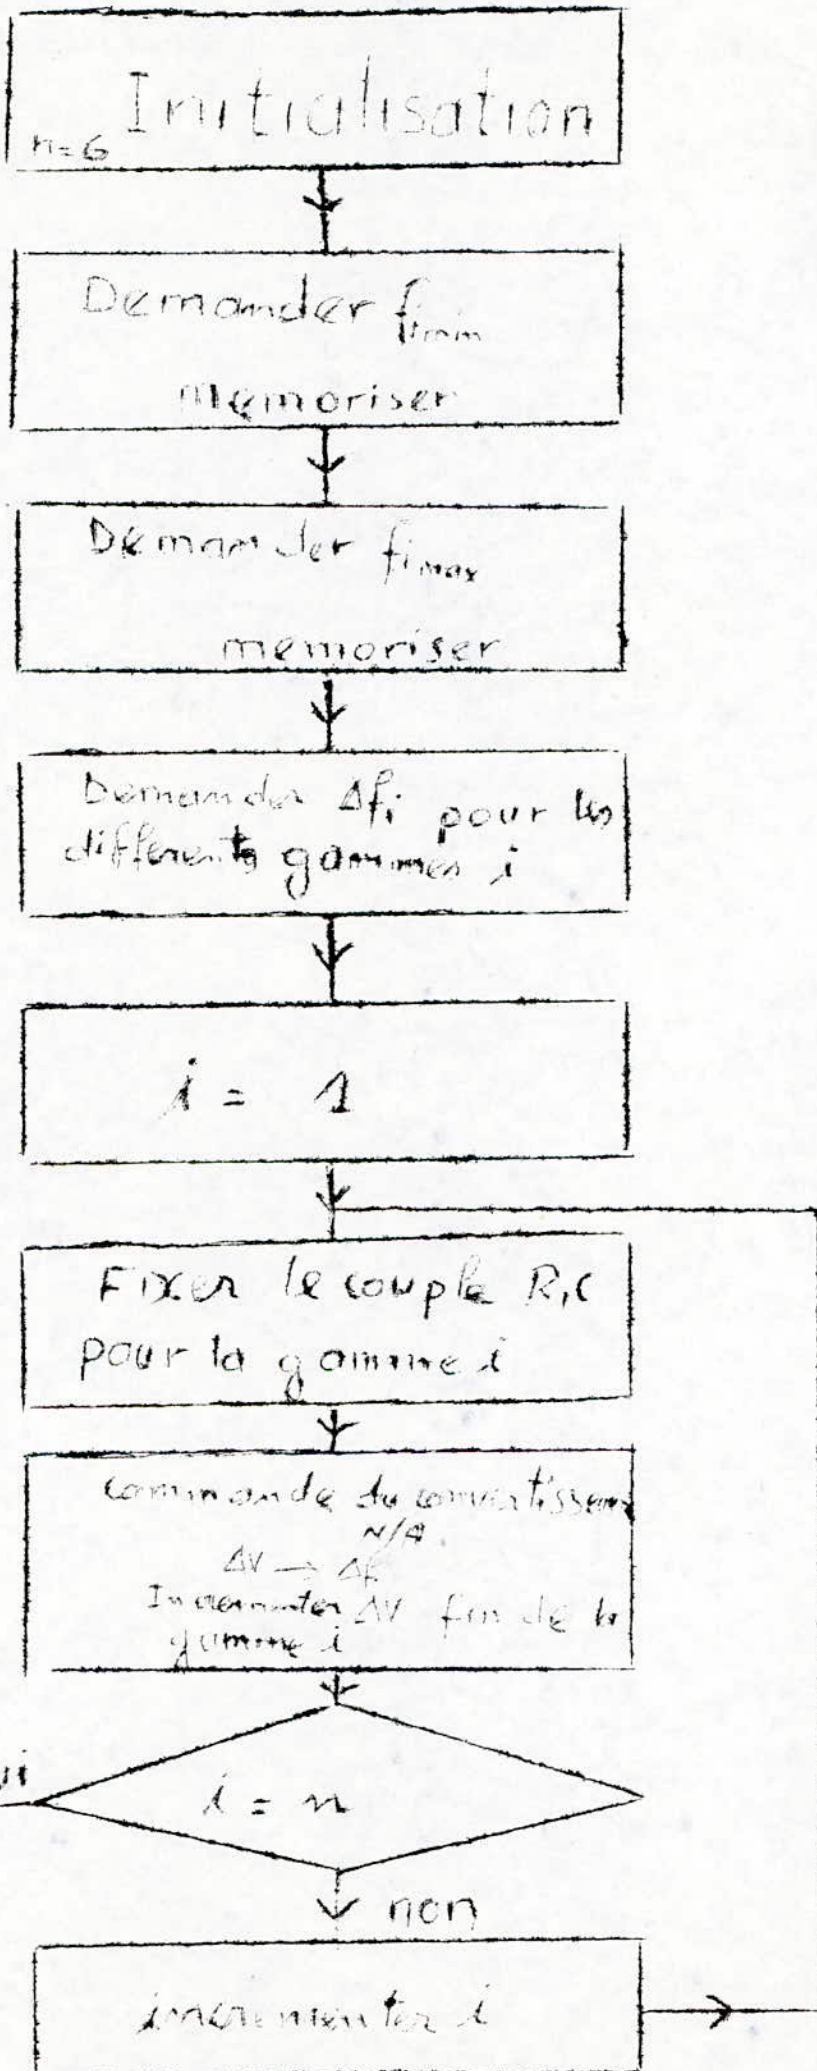 Initialisation
n=6
Demander fimin
memoriser
Demander fimax
memoriser
Demander Δfi pour les
différents gammes i
i = 1
Fixer le couple R,C
pour la gamme i
commande du convertisseur
N/A
ΔV → Δf
Incrementer ΔV fin de la
gamme i
i = n
non
incrementer i